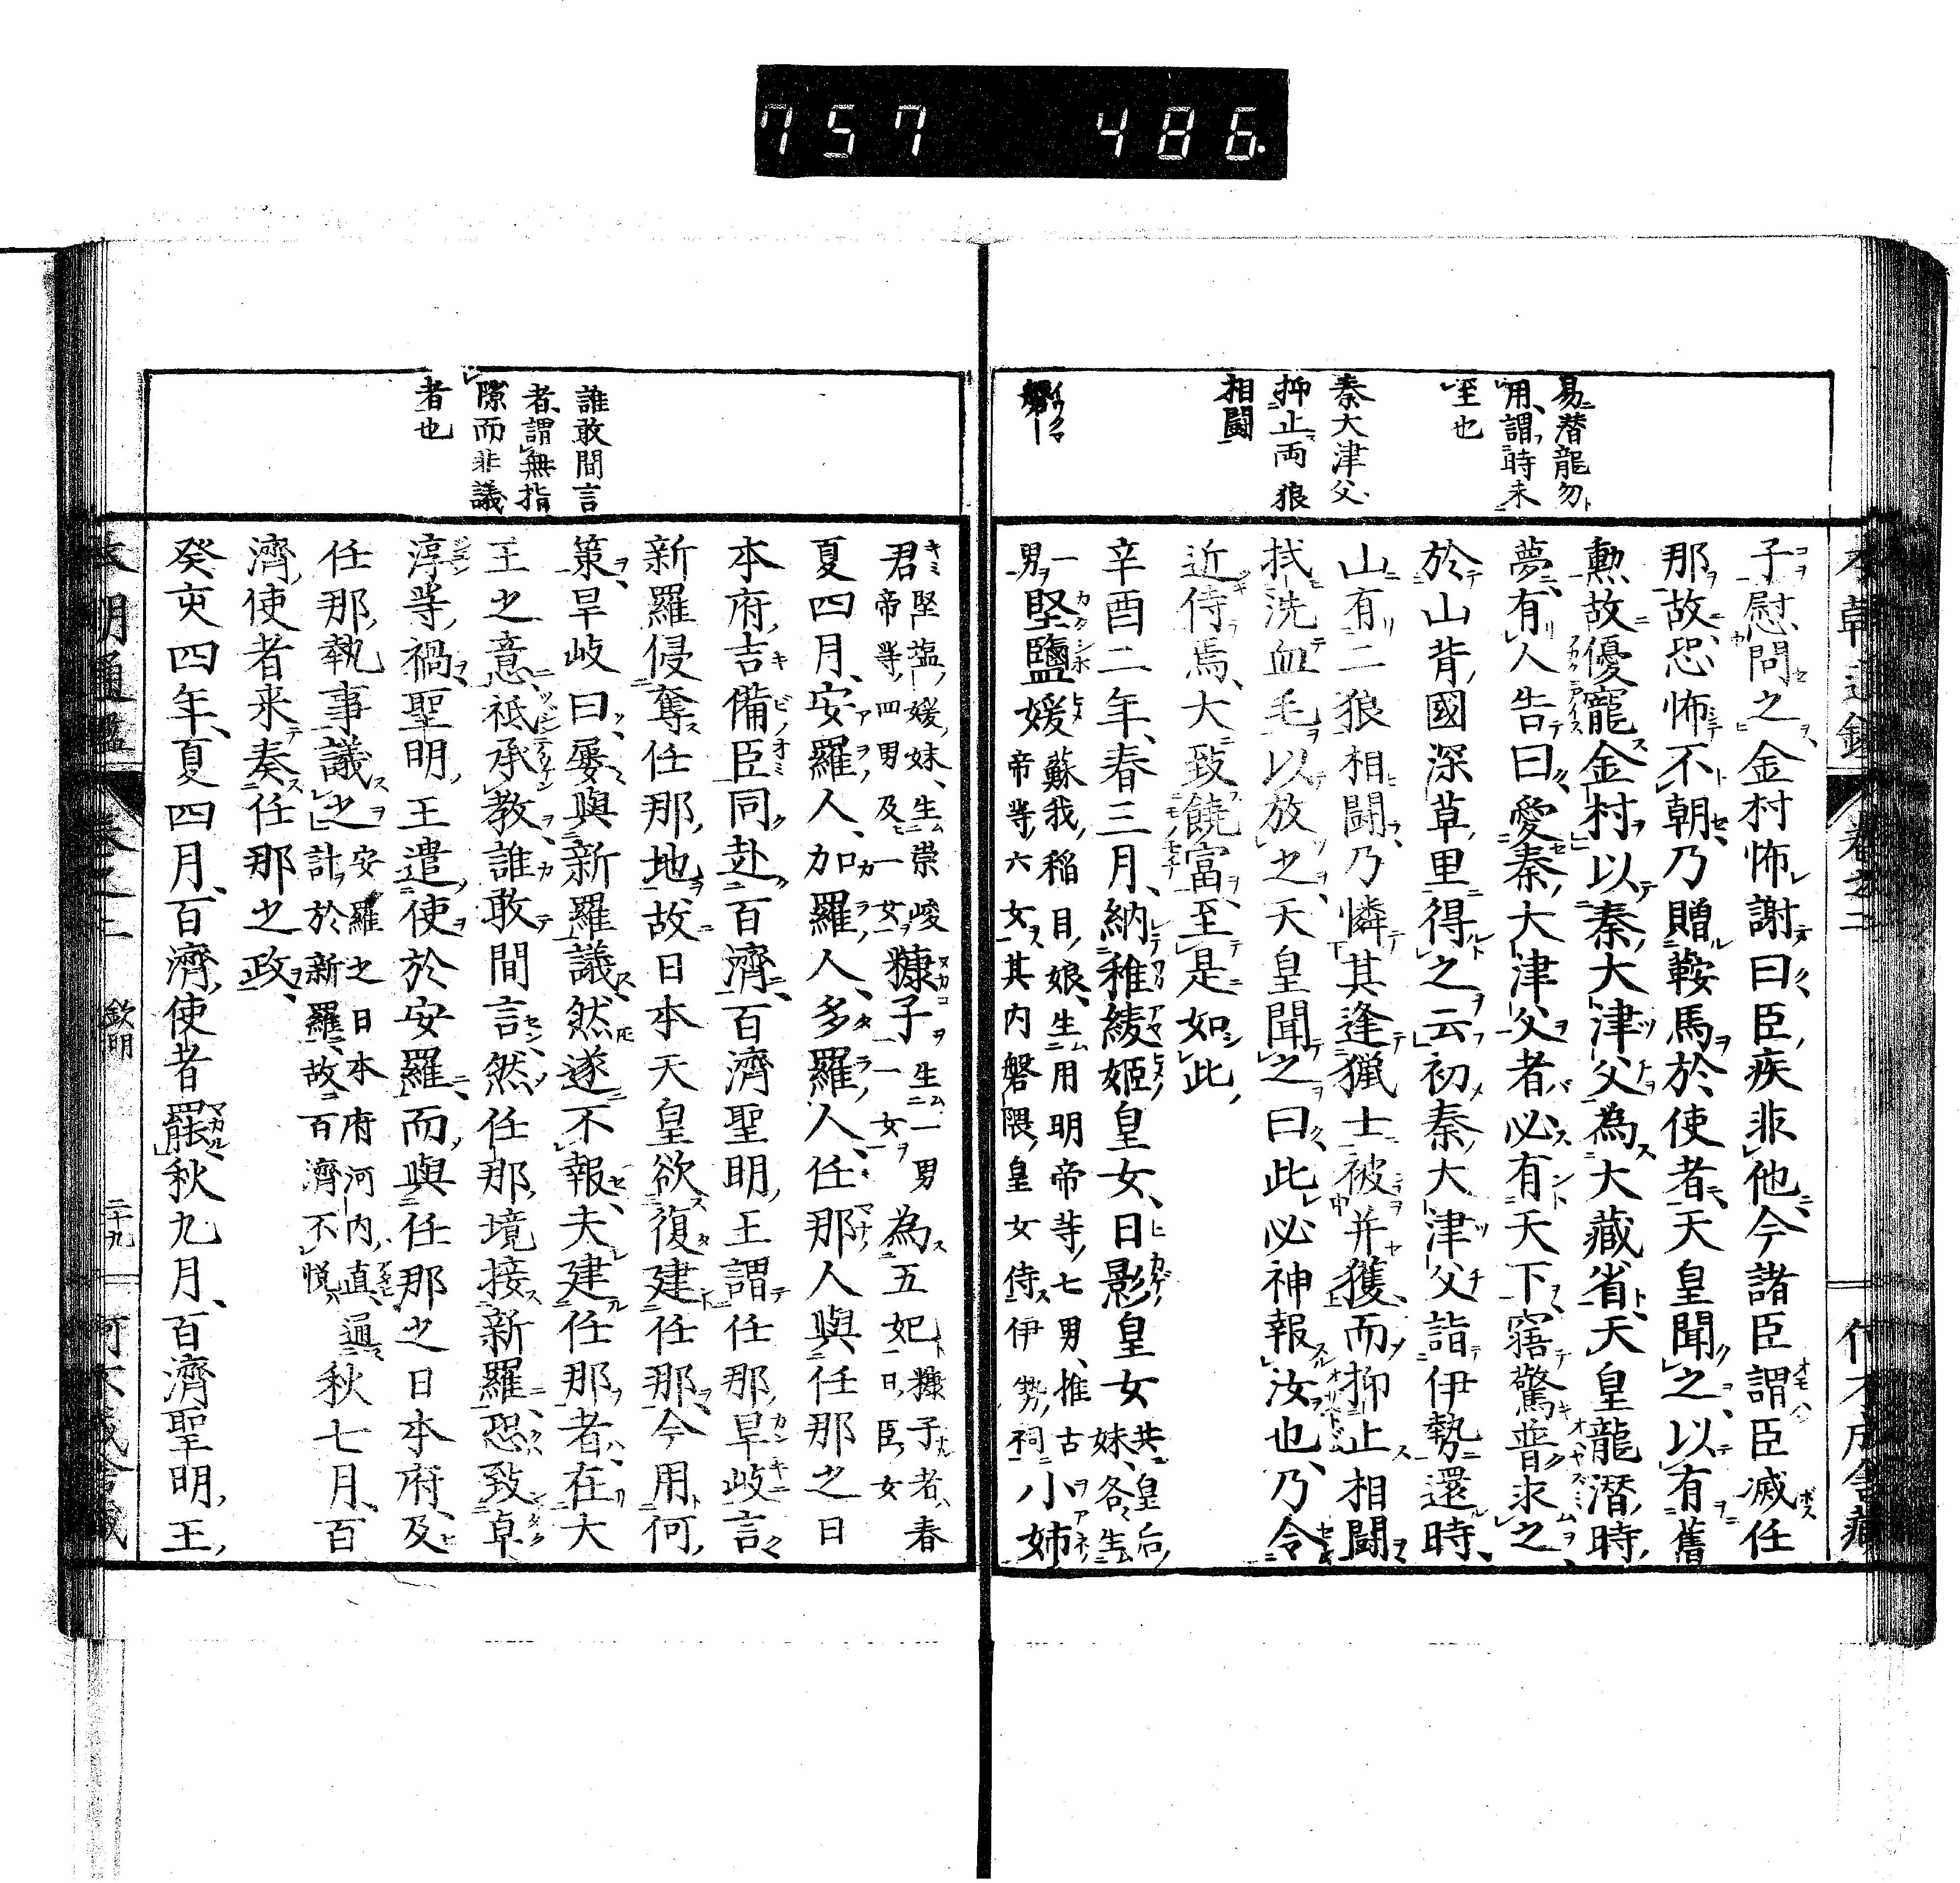 757 486.
易潜龍勿
用謂時未
至也
秦大津父
抑止両狼
相鬪
子慰問之金村怖謝曰臣疾非他今諸臣謂臣滅任
那故恐怖不朝乃贈鞍馬於使者天皇聞之以有舊
勲故優寵金村以秦大津父為大藏省天皇龍潜時
夢有人告曰愛秦大津父者必有天下寤驚普求之
於山背國深草里得之云初秦大津父詣伊勢還時
山有二狼相鬪乃憐其逢猟士被并獲而抑止相鬪
拭洗血毛以放之天皇聞之曰此必神報汝也乃令
近侍焉大致饒富至是如此
辛酉二年春三月納稚綾姫皇女日影皇女共皇后妹各生
一男堅鹽媛蘇我稲目娘生用明帝等七男推古帝等六女其内磐隈皇女侍伊勢祠小姉
誰敢間言
者謂無指
隙而非議
者也
君堅塩媛妹生崇峻帝等四男及一女糠子生一男一女為五妃一曰糠子者春日臣女
夏四月安羅人加羅人多羅人任那人與任那之日
本府吉備臣同赴百濟百濟聖明王謂任那旱岐言
新羅侵奪任那地故日本天皇欲復建任那今用何
策旱岐曰屡與新羅議然遂不報夫建任那者在大
王之意祗承教誰敢間言然任那境接新羅恐致卓
淳等禍聖明王遣使於安羅而與任那之日本府及
任那執事議之安羅之日本府河内直通計於新羅故百濟不悦秋七月百
濟使者来奏任那之政
癸亥四年夏四月百濟使者罷秋九月百濟聖明王
本朝通鑑 卷之二 欽明 二十九